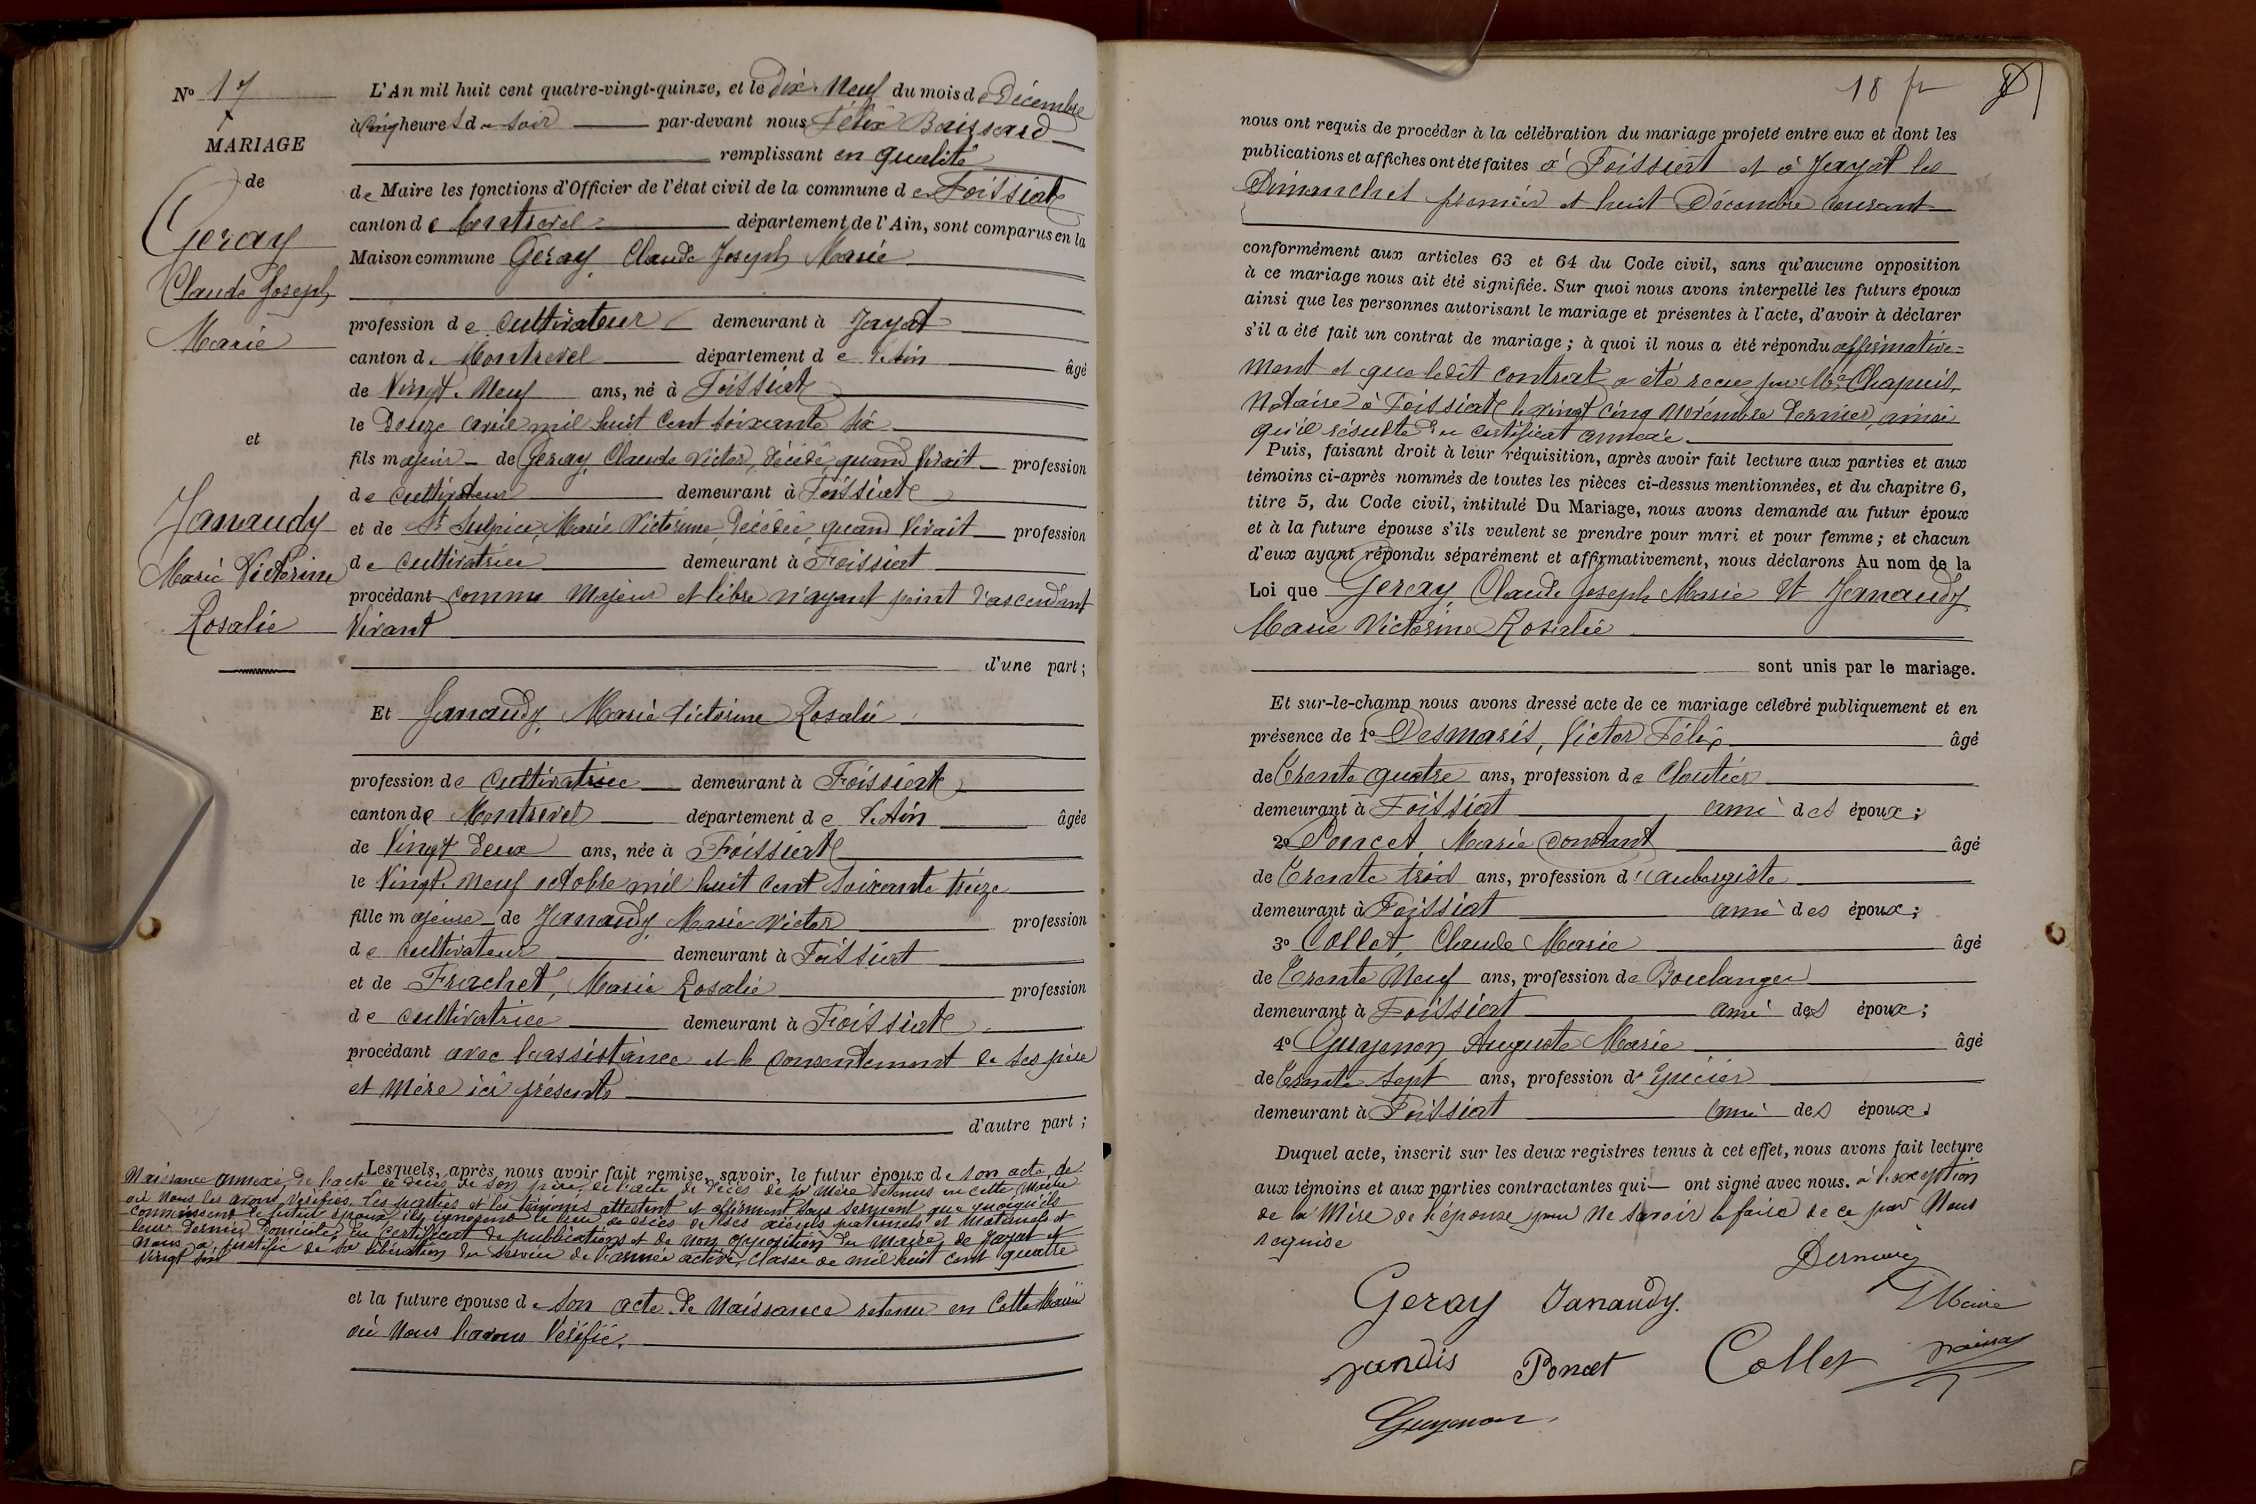 Nº 17
MARIAGE
de
Geray
Claude Joseph
Marie
et
Janaudy
Marie Victorine
Rosalie
L'An mil huit cent quatre-vingt-quinze, et le Dix-Neuf du mois de Décembre
à Cinq heures du soir par-devant nous Félix Boissard
remplissant en qualité
de Maire les fonctions d'Officier de l'état civil de la commune de Foissiat
canton de Montrevel département de l'Ain, sont comparus en la
Maison commune Geray, Claude Joseph Marie
profession de cultivateur demeurant à Jayat
canton de Montrevel département de l'Ain âgé
de Vingt-Neuf ans, né à Foissiat
le Douze avril mil huit cent soixante six
fils majeur de Geray, Claude Victor, décédé, quand vivait profession
de cultivateur demeurant à Foissiat
et de St Sulpice, Marie Victorine, décédée, quand vivait profession
de cultivatrice demeurant à Foissiat
procédant comme Majeur et libre n'ayant point d'ascendant
vivant
d'une part;
Et Janaudy, Marie Victorine Rosalie
profession de cultivatrice demeurant à Foissiat
canton de Montrevel département de l'Ain âgée
de Vingt deux ans, née à Foissiat
le Vingt-neuf octobre mil huit cent soixante treize
fille majeure de Janaudy, Marie Victor profession
de cultivateur demeurant à Foissiat
et de Frachet, Marie Rosalie profession
de cultivatrice demeurant à Foissiat
procédant avec l'assistance et le consentement de ses père
et mère ici présents
d'autre part;
Lesquels, après nous avoir fait remise, savoir, le futur époux de son acte de
Naissance annexé, de l'acte de décès de son père, de l'acte de décès de sa Mère retenus en cette Mairie
où Nous les avons vérifiés. Les parties et les témoins attestent et affirment sous serment que quoiqu'ils
connaissent le futur époux, ils ignorent le lieu de décès de ses aïeuls paternels et maternels et
leur dernier domicile, du certificat de publications et de non opposition du Maire de Jayat et
Nous a justifié de sa libération du service de l'armée active, classe de mil huit cent quatre
vingt six
et la future épouse de son acte de Naissance retenu en Cette Mairie
où Nous l'avons Vérifié.
18 fr
nous ont requis de procéder à la célébration du mariage projeté entre eux et dont les
publications et affiches ont été faites à Foissiat et à Jayat les
Dimanches premier et huit Décembre courant
conformément aux articles 63 et 64 du Code civil, sans qu'aucune opposition
à ce mariage nous ait été signifiée. Sur quoi nous avons interpellé les futurs époux
ainsi que les personnes autorisant le mariage et présentes à l'acte, d'avoir à déclarer
s'il a été fait un contrat de mariage; à quoi il nous a été répondu affirmative-
ment et que ledit contrat a été reçu par Me Chapuis
Notaire à Foissiat le vingt cinq Novembre dernier, ainsi
qu'il résulte du certificat annexé.
Puis, faisant droit à leur réquisition, après avoir fait lecture aux parties et aux
témoins ci-après nommés de toutes les pièces ci-dessus mentionnées, et du chapitre 6,
titre 5, du Code civil, intitulé Du Mariage, nous avons demandé au futur époux
et à la future épouse s'ils veulent se prendre pour mari et pour femme; et chacun
d'eux ayant répondu séparément et affirmativement, nous déclarons Au nom de la
Loi que Geray, Claude Joseph Marie et Janaudy
Marie Victorine Rosalie
sont unis par le mariage.
Et sur-le-champ nous avons dressé acte de ce mariage célébré publiquement et en
présence de 1º Desmaris, Victor Félix âgé
de Trente quatre ans, profession de Cloutier
demeurant à Foissiat ami des époux;
2º Poncet, Marie Constant âgé
de Trente trois ans, profession d'aubergiste
demeurant à Foissiat ami des époux;
3º Collet, Claude Marie âgé
de Trente Neuf ans, profession de Boulanger
demeurant à Foissiat ami des époux;
4º Guyenon, Auguste Marie âgé
de Trente sept ans, profession d'Epicier
demeurant à Foissiat ami des époux.
Duquel acte, inscrit sur les deux registres tenus à cet effet, nous avons fait lecture
aux témoins et aux parties contractantes qui ont signé avec nous. à l'exception
de la Mère de l'épouse pour ne savoir le faire de ce par Nous
requise
Geray Janaudy.
Maire
Poncet Collet
Guyenon